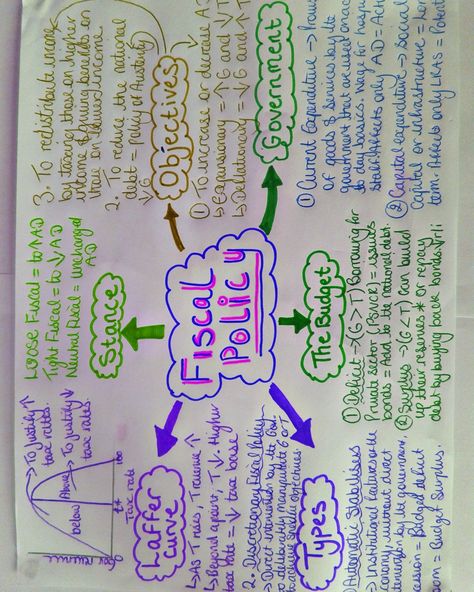 Fiscal
Policy
Objectives
① To increase or decrease AD
↳ Expansionary = ↑G and ↓T
↳ Deflationary = ↓G and ↑T
2. To reduce the national
debt = Policy of Austerity
↓G
3. To redistribute income
by taxing those on higher
income & giving benefits to
those on lower income.
Government
① Current Expenditure →
of goods & services by the
government that are used on a
day to day basis. Wage for
staff. Affects only AD =
② Capital expenditure → social
capital or infrastructure =
term. Affects only LRAS =
The Budget
① Deficit → (G > T) Borrowing from
Private sector (PSNCR) = issues
bonds = Add to the national debt.
② Surplus → (G < T) can build
up their reserves * or repay
debt by buying back bonds
Types
① Automatic Stabilisers
→ Institutional features of the
economy, without direct
intervention by the government.
= Budget deficit
= Budget Surplus.
2. Discretionary Fiscal Policy
→ Direct intervention by the Gov
to
Laffer
Curve
↳ As T rises, T revenue ↑
↳ Beyond a point, T ↓. Higher
tax rate = ↓ tax base
Tax revenue
below
Above
t*
100
Tax rate
→ To justify ↑
tax rates.
→ To justify ↓
tax rates.
Stance
Loose Fiscal = to ↑AD
Tight Fiscal = to ↓AD
Neutral Fiscal = Unchanged
AD